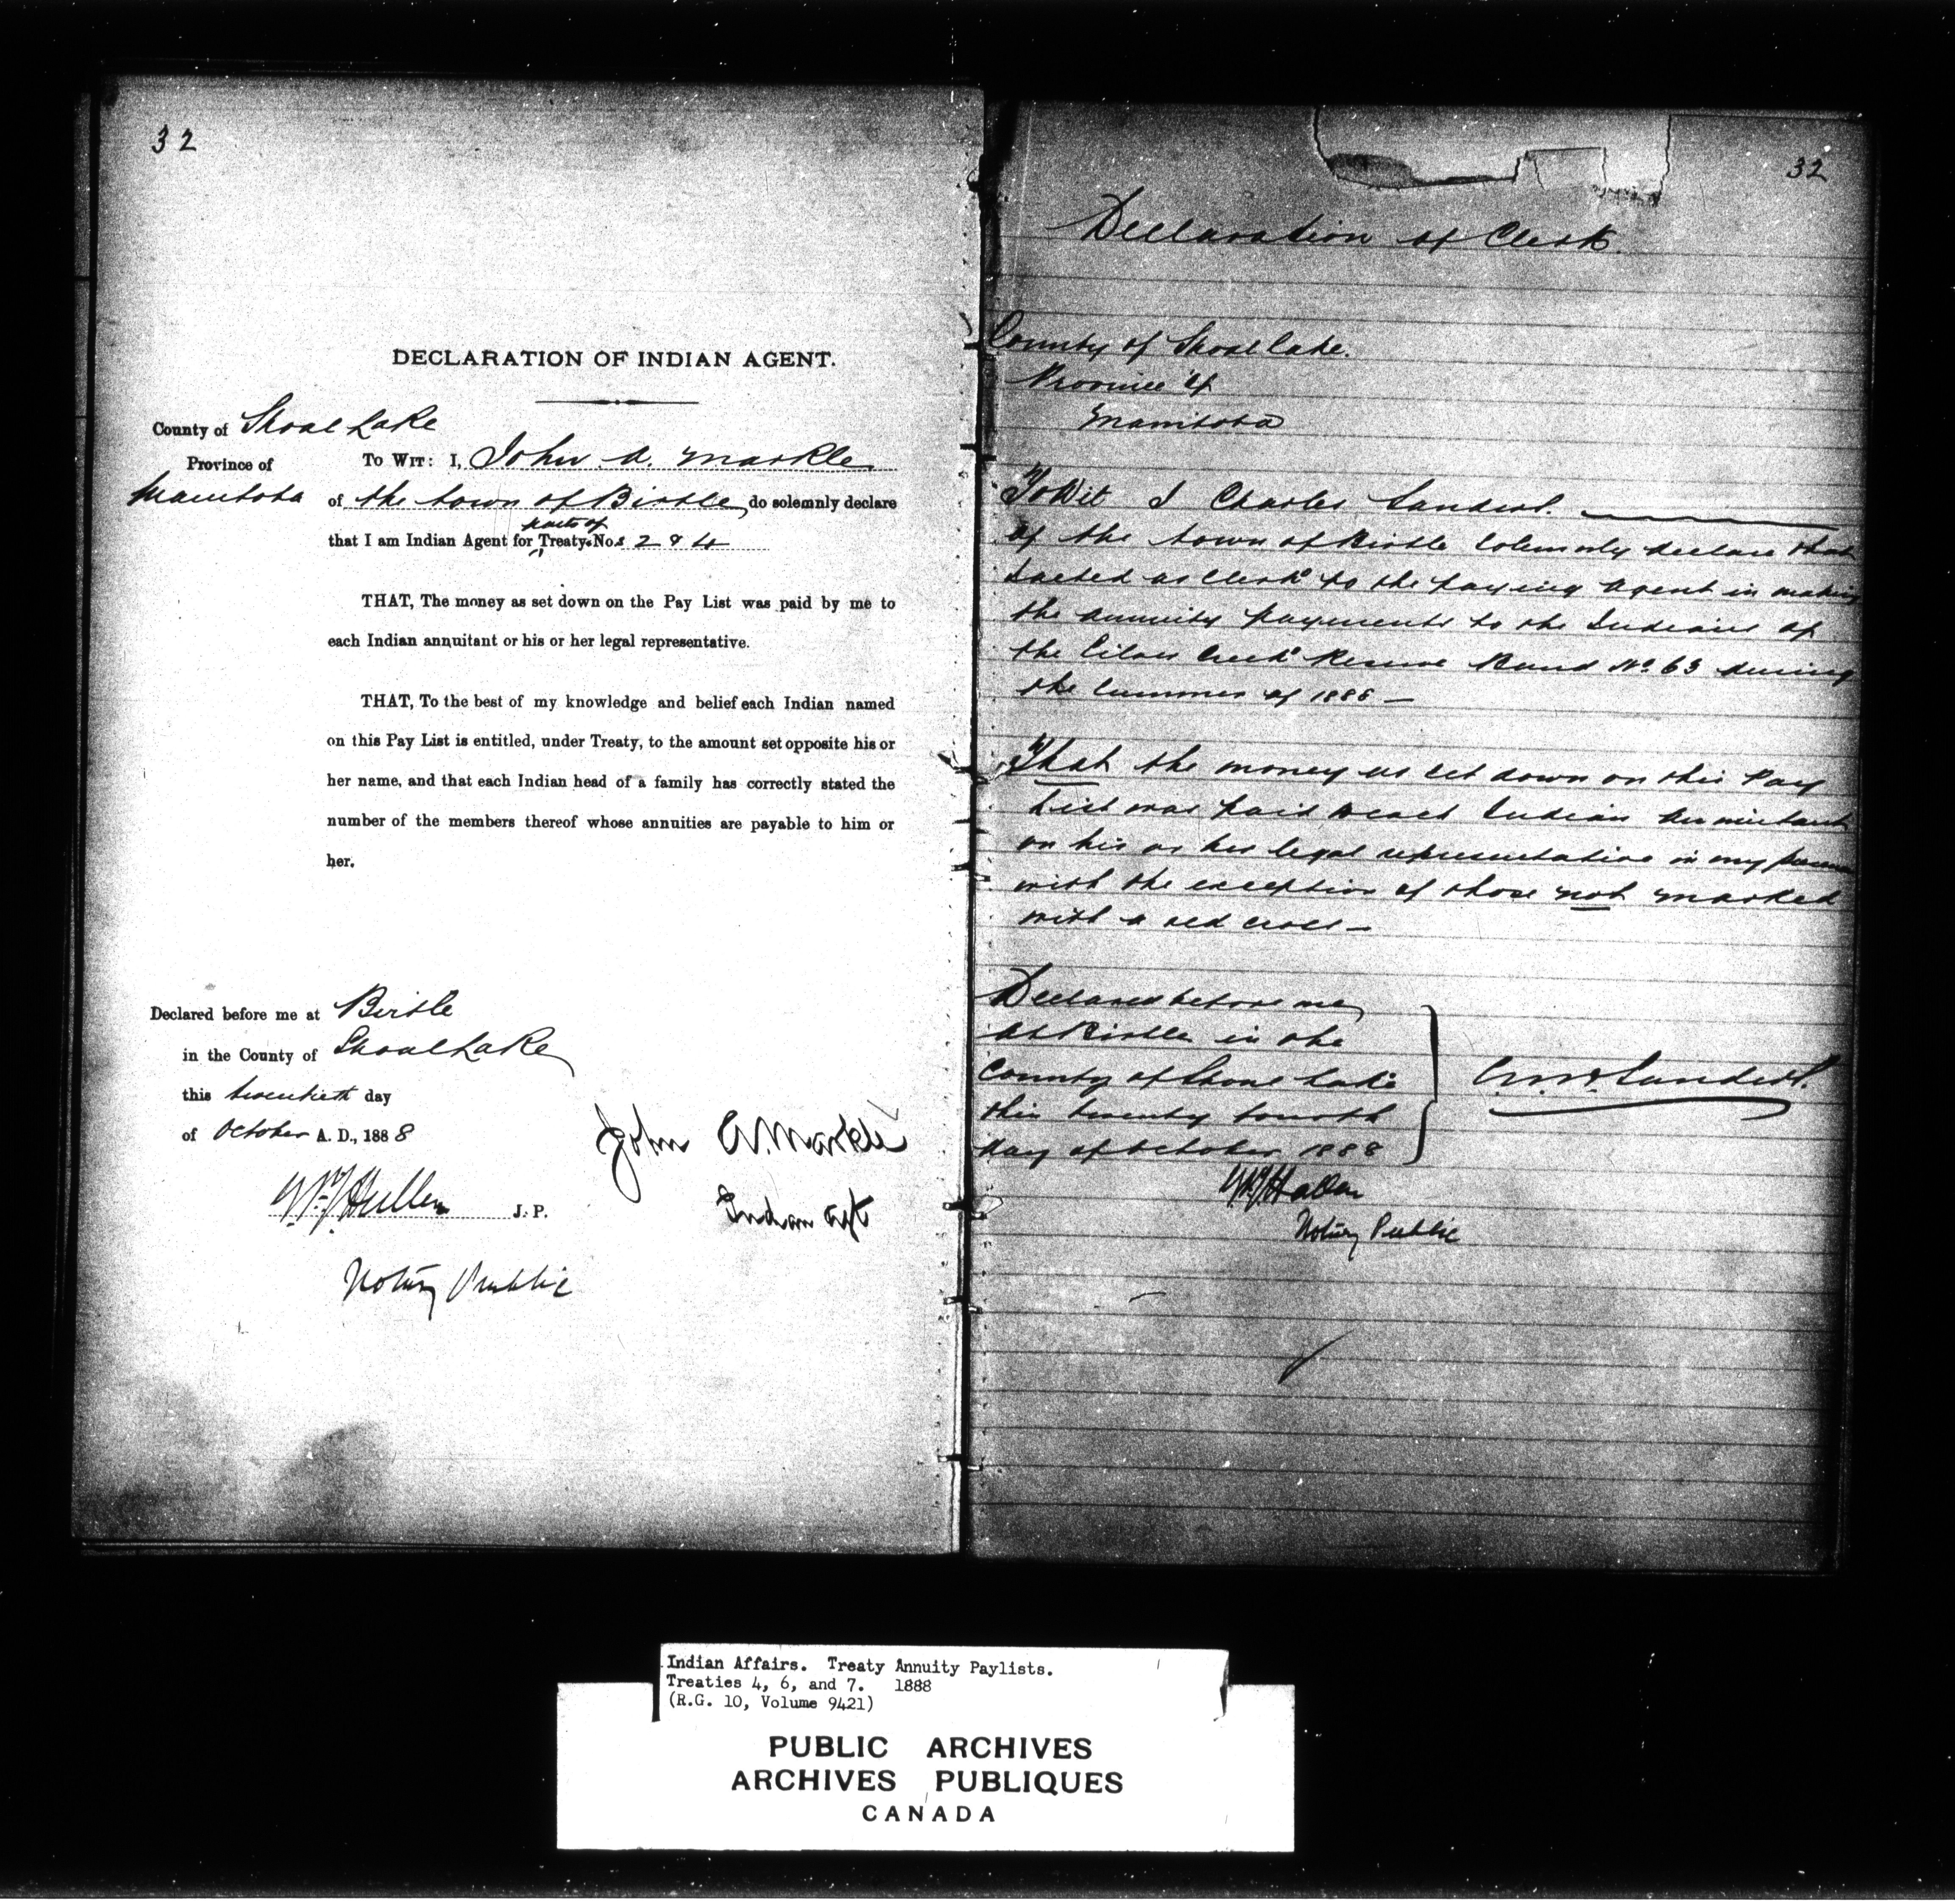 32
DECLARATION OF INDIAN AGENT.
County of Shoal Lake
Province of To Wit: I, John A. Markle
Manitoba of the town of Birtle, do solemnly declare
parts of
that I am Indian Agent for Treatys Nos 2 & 4
THAT, The money as set down on the Pay List was paid by me to
each Indian annuitant or his or her legal representative.
THAT, To the best of my knowledge and belief each Indian named
on this Pay List is entitled, under Treaty, to the amount set opposite his or
her name, and that each Indian head of a family has correctly stated the
number of the members thereof whose annuities are payable to him or
her.
Declared before me at Birtle
in the County of Shoal Lake
this twentieth day
of October A. D., 1888
John A. Markle
J. P.
Indian Agt
Notary Public
32
Declaration of Clerk
County of Shoal Lake.
Province of
Manitoba
To Wit I Charles
of the town of Birtle solemnly declare that
I acted as Clerk to the paying Agent in making
the annuity payments to the Indians of
the Reserve Band No 63 during
the summer of 1888 —
That the money as set down on this Pay
List was paid to each Indian Annuitant
or his or her legal representative in my
with the exception of those not marked
with a red cross —
Declared before me
at Birtle in the
County of Shoal Lake
this twenty fourth
day of October 1888
Notary Public
Indian Affairs. Treaty Annuity Paylists.
Treaties 4, 6, and 7. 1888
(R.G. 10, Volume 9421)
PUBLIC ARCHIVES
ARCHIVES PUBLIQUES
CANADA